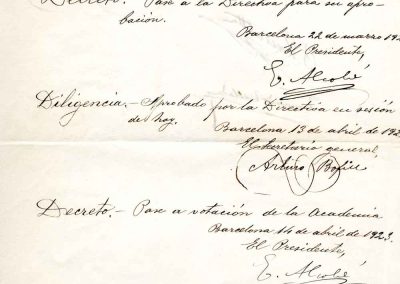 Decreto.- Pase a la Directiva para su apro-
bación.
Barcelona 22 de marzo 192
El Presidente,
E. Alcobé
Diligencia.- Aprobado por la Directiva en sesión
de hoy.
Barcelona 13 de abril de 192
El Secretario general,
Arturo Bofill
Decreto.- Pase a votación de la Academia
Barcelona 14 de abril de 1923.
El Presidente,
E. Alcobé